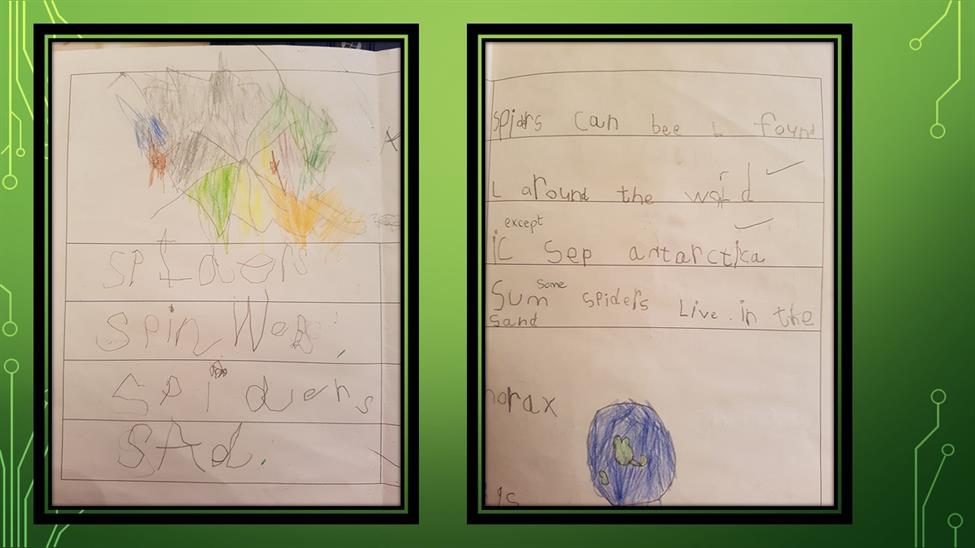 spiduers
spin Webs
spiduens
sAd.
spiders can bee L found
L around the world
r
except
ic Sep antarctica
Sum some spiders Live in the
sand
horax
is